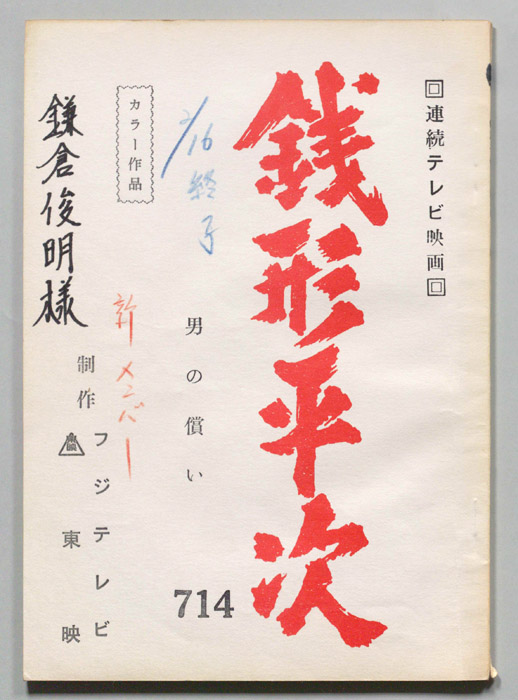 回連続テレビ映画回
銭形平次
カラー作品
2/16 終了
男の償い
714
新メンバー
鎌倉俊明様
制作
フジテレビ
東映